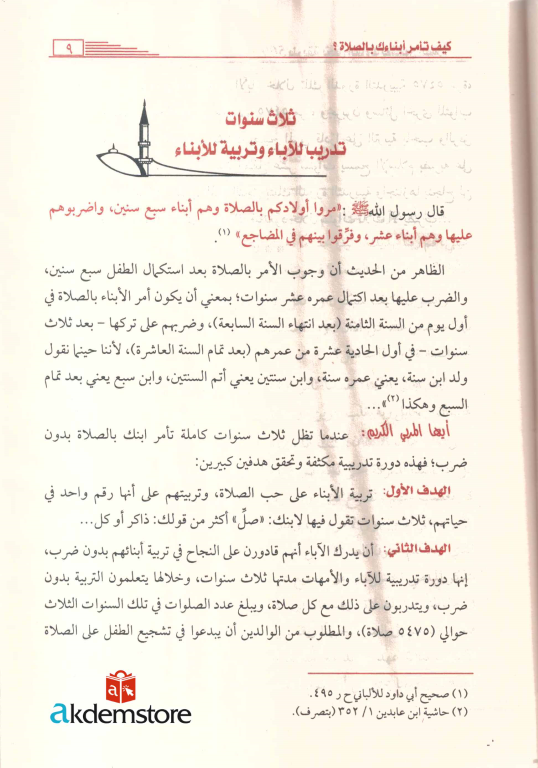 كيف تأمر أبناءك بالصلاة ؟
٩
ثلاث سنوات
تدريب للآباء وتربية للأبناء
قال رسول الله ﷺ: «مروا أولادكم بالصلاة وهم أبناء سبع سنين، واضربوهم
عليها وهم أبناء عشر، وفرِّقوا بينهم في المضاجع» (١).
الظاهر من الحديث أن وجوب الأمر بالصلاة بعد استكمال الطفل سبع سنين،
والضرب عليها بعد اكتمال عمره عشر سنوات؛ بمعني أن يكون أمر الأبناء بالصلاة في
أول يوم من السنة الثامنة (بعد انتهاء السنة السابعة)، وضربهم على تركها - بعد ثلاث
سنوات - في أول الحادية عشرة من عمرهم (بعد تمام السنة العاشرة)، لأننا حينما نقول
ولد ابن سنة، يعني عمره سنة، وابن سنتين يعني أتم السنتين، وابن سبع يعني بعد تمام
السبع وهكذا (٢)»...
أيها المربي الكريم: عندما تظل ثلاث سنوات كاملة تأمر ابنك بالصلاة بدون
ضرب؛ فهذه دورة تدريبية مكثفة وتحقق هدفين كبيرين:
الهدف الأول: تربية الأبناء على حب الصلاة، وتربيتهم على أنها رقم واحد في
حياتهم، ثلاث سنوات تقول فيها لابنك: «صلِّ» أكثر من قولك: ذاكر أو كل...
الهدف الثاني: أن يدرك الآباء أنهم قادورن على النجاح في تربية أبنائهم بدون ضرب،
إنها دورة تدريبية للآباء والأمهات مدتها ثلاث سنوات، وخلالها يتعلمون التربية بدون
ضرب، ويتدربون على ذلك مع كل صلاة، ويبلغ عدد الصلوات في تلك السنوات الثلاث
حوالي (٥٤٧٥ صلاة)، والمطلوب من الوالدين أن يبدعوا في تشجيع الطفل على الصلاة
(١) صحيح أبي داود للألباني ح ر ٤٩٥.
(٢) حاشية ابن عابدين ١/ ٣٥٢ (بتصرف).
a
akdemstore